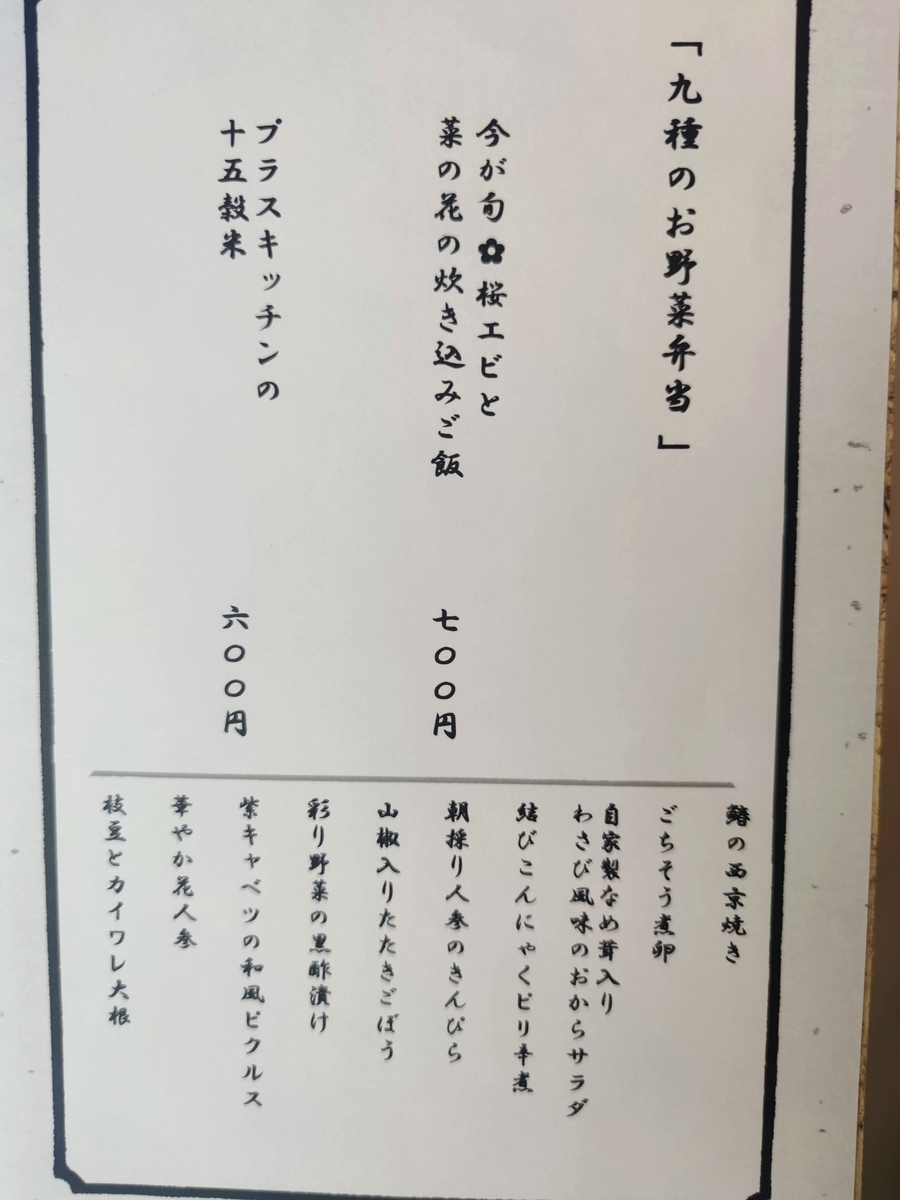 「九種のお野菜弁当」
今が旬✿桜エビと
菜の花の炊き込みご飯
七〇〇円
プラスキッチンの
十五穀米
六〇〇円
鰆の西京焼き
ごちそう煮卵
自家製なめ茸入り
わさび風味のおからサラダ
結びこんにゃくピリ辛煮
朝採り人参のきんぴら
山椒入りたたきごぼう
彩り野菜の黒酢漬け
紫キャベツの和風ピクルス
華やか花人参
枝豆とカイワレ大根